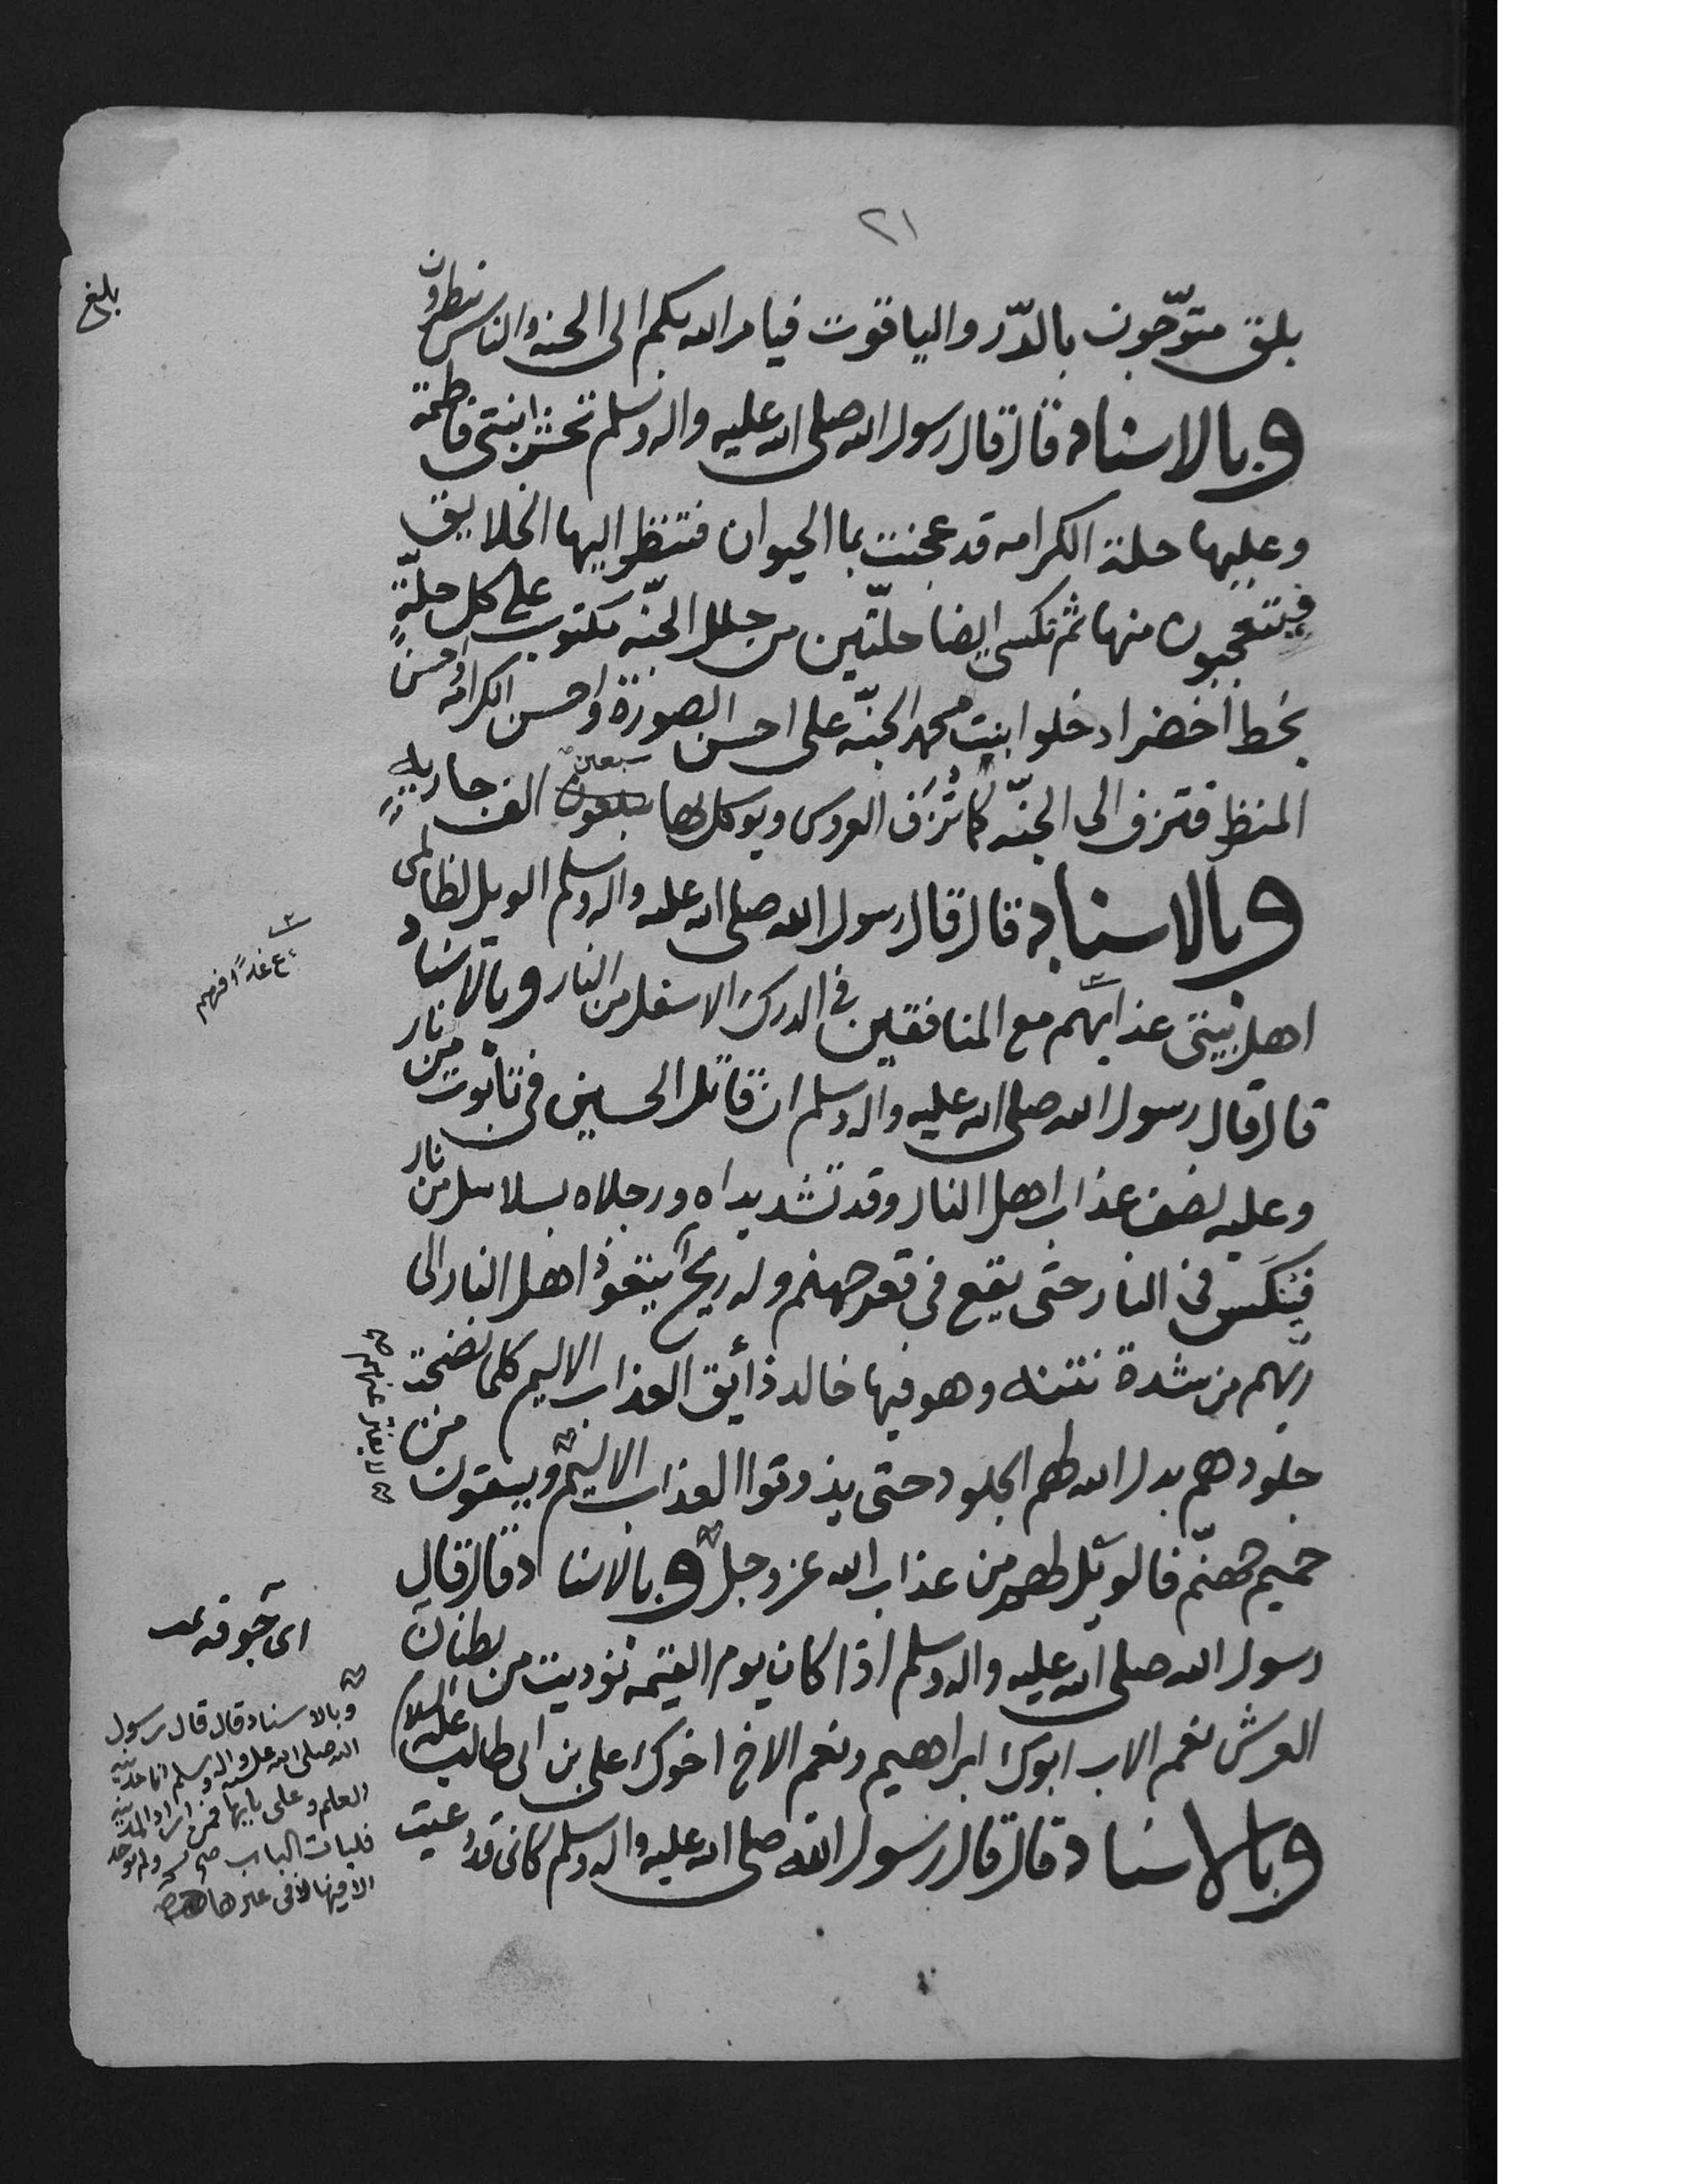 ٢١
بلق متوّجون بالدّر والياقوت فيامر الله بكم الى الجنه والناس ينظرون
بلغ
وبالاسناد قال قال رسول الله صلى الله عليه واله وسلم تحشر ابنتي فاطمة
وعليها حلة الكرامه قد عجنت بما الحيوان فتنظر اليها الخلايق
فيتعجبون منها ثم تكسى ايضا حلّتين من حلل الجنّه مكتوب على كل حلّةٍ
بخط أخضر ادخلوا ابنت محمد الجنّه على احسن الصورة واحسن الكرامه واحسن
المنظر فتزف الى الجنّه كما تُزَف العروس ويوكل لها سبعون سبعين الف جارية
وبالاسناد قال قال رسول الله صلى الله عليه واله وسلم الويل لظالمى
اهل بيتى عذابهم مع المنافقين فى الدرك الاسفل من النار وبالاسناد
قال قال رسول الله صلى الله عليه واله وسلم ان قاتل الحسين فى تابوت من نار
وعليه نصف عذاب اهل النار وقد تشد يداه ورجلاه بسلاسل من نار
فينكس فى النار حتى يقع فى قعر جهنم وله ريح يتعوذ اهل النار الى
ربّهم من شدة نتنه وهو فيها خالد ذائق العذاب الاليم كلما نضجت
جلودهم بدل الله لهم الجلود حتى يذوقوا العذاب الاليم ويسقون من
حميم جهنّم فالويل لهم من عذاب الله عز وجل وبالاسناد قال قال
رسول الله صلى الله عليه واله وسلم اذا كان يوم القيمه نوديت من بطنان
العرش نعم الاب ابوك ابراهيم ونعم الاخ اخوك على بن ابى طالب عليه السلام
وبالاسناد قال قال رسول الله صلى الله عليه واله وسلم كانى قد دعيت
لا يفتر عنهم
اى جوفه
وبالاسناد قال قال رسول
الله صلى الله عليه واله وسلم انا مدينة
العلم وعلى بابها فمن اراد المدينة
فليات الباب